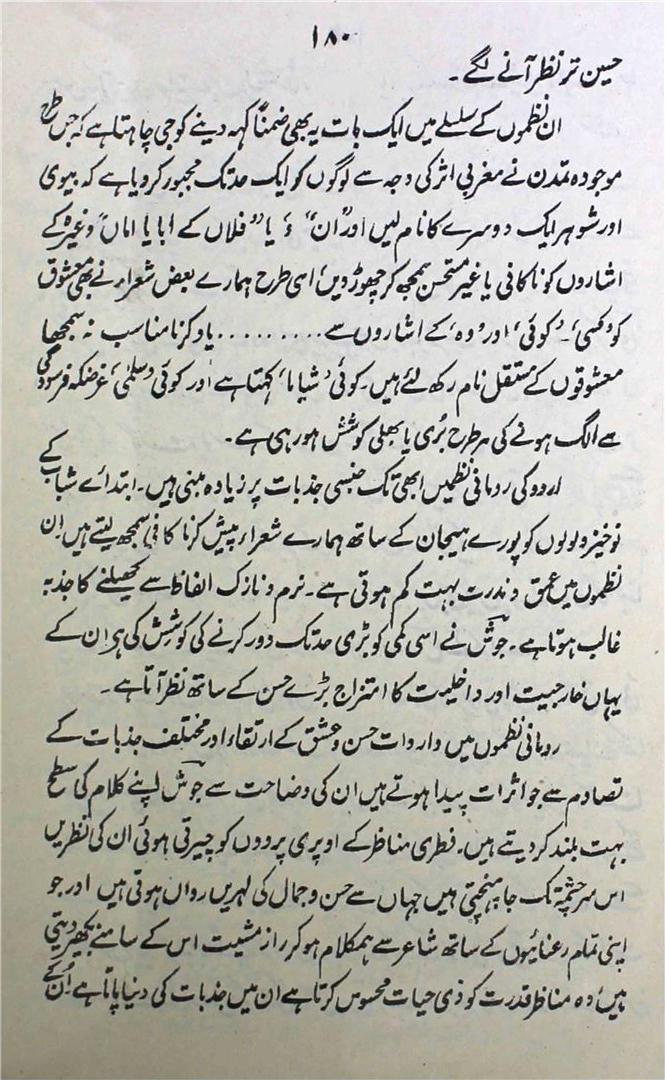 ۱۸۰
حسین تر نظر آنے لگے۔
ان نظموں کے سلسلے میں ایک بات یہ بھی ضمناً کہہ دینے کو جی چاہتا ہے کہ جس طرح
موجودہ تمدن نے مغربی اثر کی وجہ سے لوگوں کو ایک حد تک مجبور کر دیا ہے کہ بیوی
اور شوہر ایک دوسرے کا نام لیں اور ”ان“ ، یا ”فلاں کے ابا یا اماں“ وغیرہ کے
اشاروں کو ناکافی یا غیر مستحسن سمجھ کر چھوڑ دیں، اسی طرح ہمارے بعض شعراء نے بھی معشوق
کو ’کسی‘۔ ’کوئی‘ اور ’وہ‘ کے اشاروں سے ......... یاد کرنا مناسب نہ سمجھا
معشوقوں کے مستقل نام رکھ لئے ہیں۔ کوئی ’شیاما‘ کہتا ہے اور کوئی ’سلمٰی‘ غرضکہ فرسودگی
سے الگ ہونے کی ہر طرح بُری یا بھلی کوشش ہو رہی ہے۔
اردو کی رومانی نظمیں ابھی تک جنسی جذبات پر زیادہ مبنی ہیں۔ ابتدائے شباب کے
نوخیز ولولوں کو پورے ہیجان کے ساتھ ہمارے شعراء پیش کرنا کافی سمجھ لیتے ہیں اِن
نظموں میں عمق و ندرت بہت کم ہوتی ہے۔ نرم و نازک الفاظ سے کھیلنے کا جذبہ
غالب ہوتا ہے۔ جوشؔ نے اسی کمی کو بڑی حد تک دور کرنے کی کوشش کی ہے ان کے
یہاں خارجیت اور داخلیت کا امتزاج بڑے حسن کے ساتھ نظر آتا ہے۔
رومانی نظموں میں واردات حسن و عشق کے ارتقاء اور مختلف جذبات کے
تصادم سے جو اثرات پیدا ہوتے ہیں ان کی وضاحت سے جوشؔ اپنے کلام کی سطح
بہت بلند کر دیتے ہیں۔ فطری مناظر کے اوپری پردوں کو چیرتی ہوئی ان کی نظریں
اس سرچشمہ تک جا پہنچتی ہیں جہاں سے حسن و جمال کی لہریں رواں ہوتی ہیں اور جو
اپنی تمام رعنائیوں کے ساتھ شاعر سے ہمکلام ہو کر راز مشیت اس کے سامنے بکھیر دیتی
ہیں، وہ مناظر قدرت کو ذی حیات محسوس کرتا ہے ان میں جذبات کی دنیا پاتا ہے اُن کے